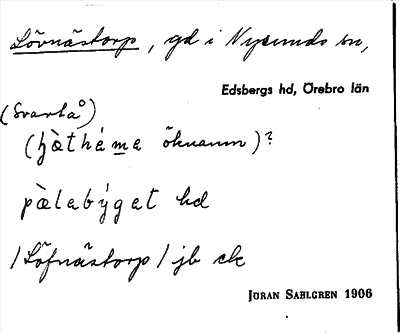 Lövnästorp, gd i Nysunds sn,
Edsbergs hd, Örebro län
(Svartå)
(hètheme öknamn)?
pàlabýget hd
/Löfnästorp/ jb ck
Jöran Sahlgren 1906